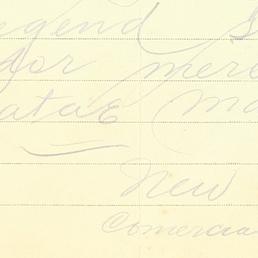 egend S
for mer
atae ma
New
Comercia